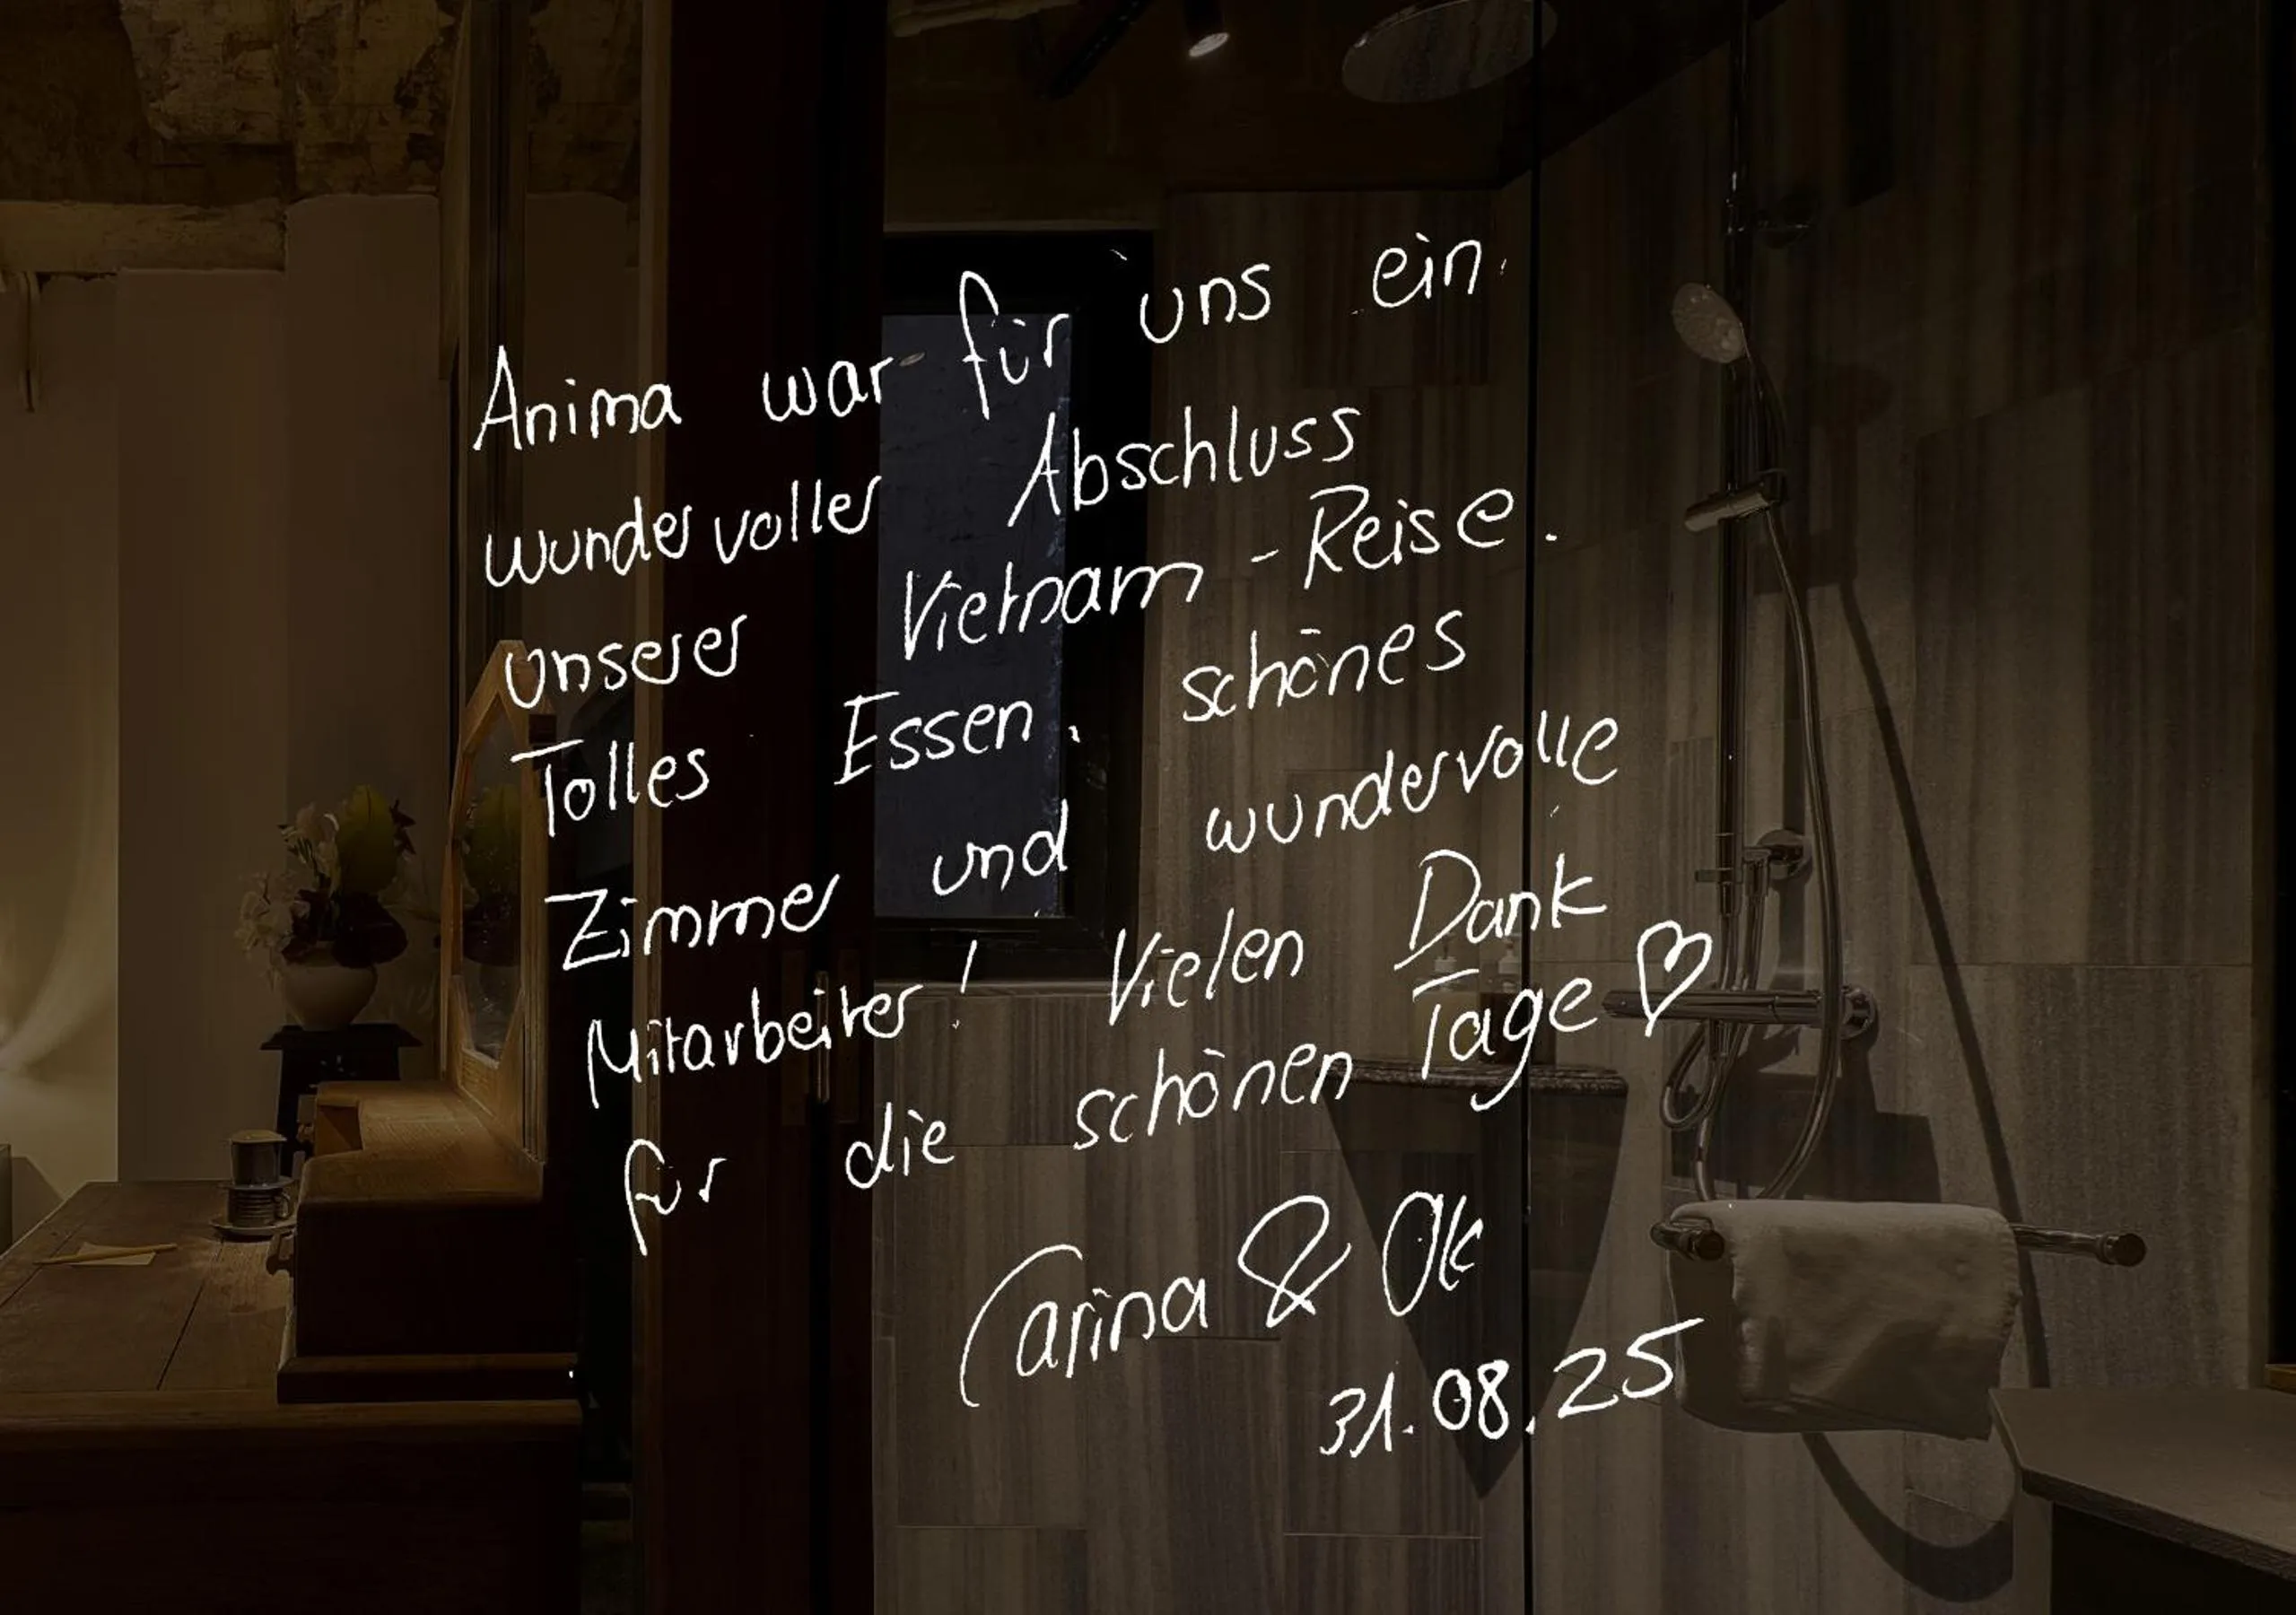 Anima war für uns ein
wundervoller Abschluss
unserer Vietnam-Reise.
Tolles Essen, schönes
Zimmer und wundervolle
Mitarbeiter! Vielen Dank
für die schönen Tage ♡
Carina & Ok
31.08.25